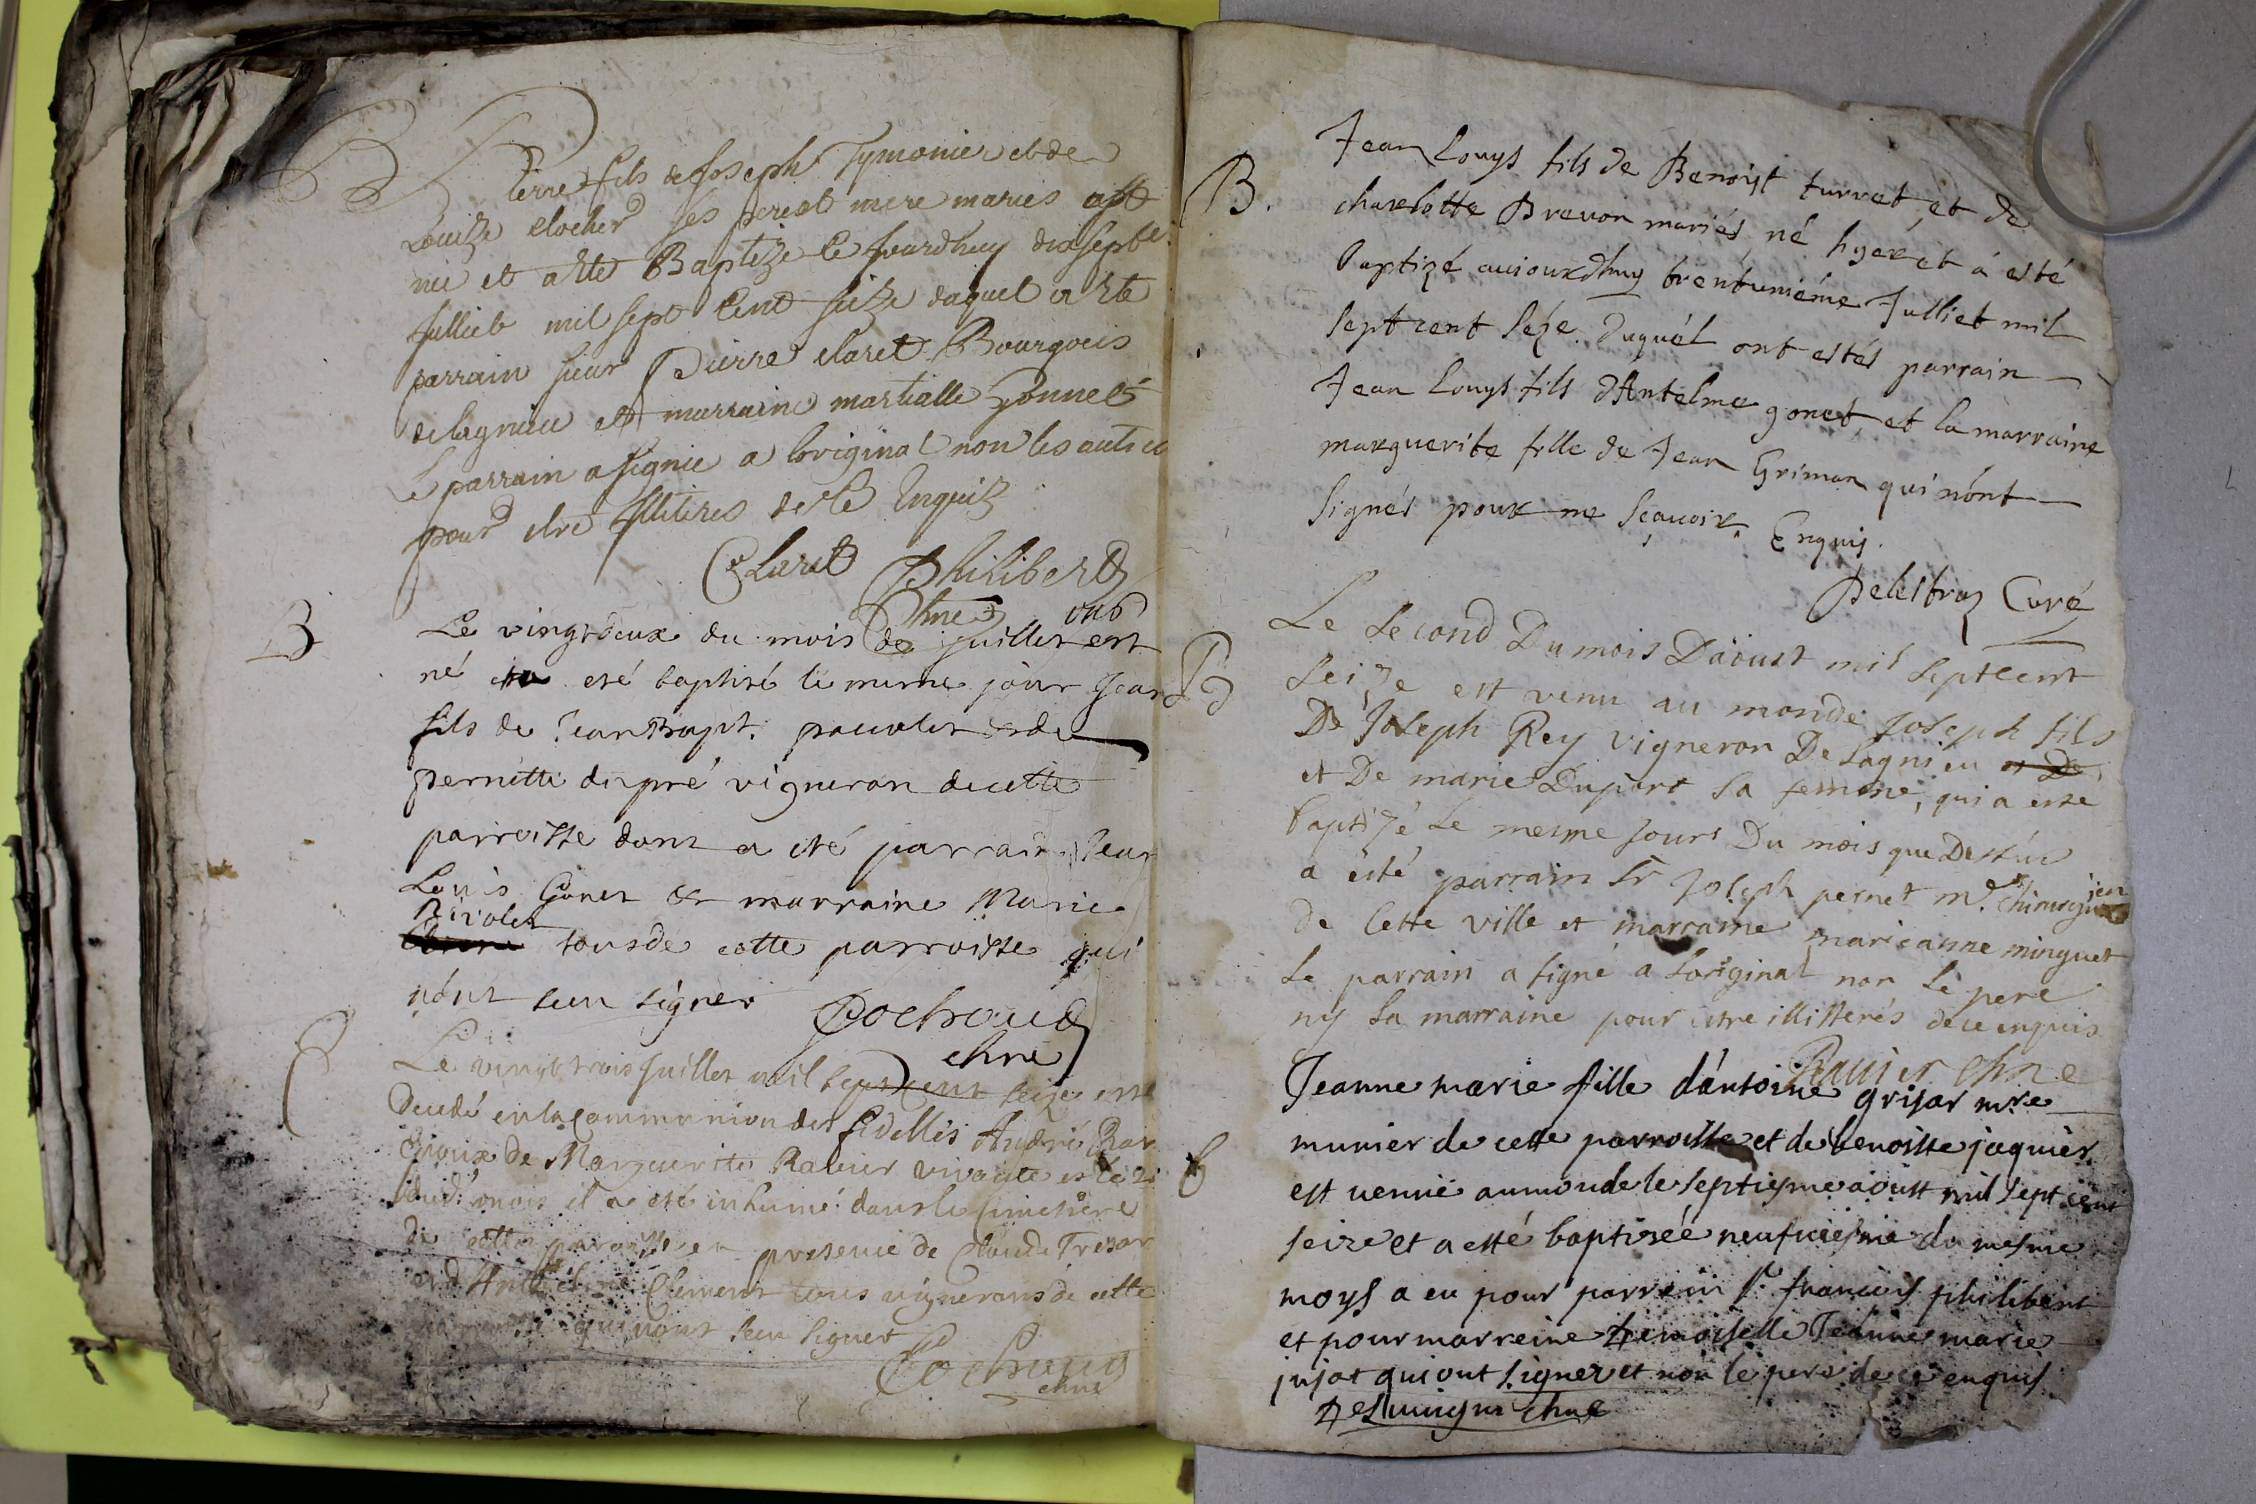 B
Pierre fils de Joseph Tymonier et de
Louize clocher ses pere et mere maries est
né et a este Baptize ce jourdhuy dix sept
Julliet mil sept Cent seize duquel a este
parrain sieur Pierre claret Bourgois
de lagnieu et marraine martialle Gonnet
le parrain a signé a loriginal non les autres
pour estre Illiteres de ce Enquis
Claret Philibert
Chne vic
B
Le vingt deux du mois de juillet est
né et a eté baptisé le meme jour Jean
fils de Jean Bapt. et de
pernette dupré vigneron de cette
parroisse dont a eté parrain Jean
Louis Gonet & marraine Marie
Nivolet
tous de cette parroisse qui
n'ont sceu signer
Cochoud
chne
Le vingt trois juillet mil sept cent seize est
decedé en la communion des fidelles André
Epoux de Marguerite Ravier vivante et le
dud. mois il a eté inhumé dans le simetiere
de cette parroisse en presence de Claude Tresar
et d'Anthelme Clement tous vignerons de cette
parroisse qui n'ont sceu signer
Cochoud
chne
B.
Jean Louys fils de Benoist turret et de
charlotte Brevon mariés né hyer et á esté
baptizé auiourdhuy trentuniéme Julliet mil
sept cent seze. Duquél ont estés parrain
Jean Louys fils d'Antelme gonet et la marraine
marguerite fille de Jean Griman qui n'ont
signés pour ne sçauoir. Enquis.
Delestraz Curé
Le second Du mois Daoust mil sept cent
seize est venu au monde Joseph fils
De Joseph Rey vigneron De Lagnieu et De
et De marie Duport sa femme, qui a este
baptizé le mesme Jours Du mois que Dessus
a êité parrain Sr Joseph pernet me. Chirurgien
de Cette ville et marraine marieanne minguet
le parrain a signé a Loriginal non le pere
ny la marraine pour estre illitterés de ce enquis
Ravier chne
Jeanne marie fille d'antoine grisar mre
munier de cette parroisse et de benoiste jaquier
est venue au monde le septiesme aoust mil sept cent
seize et a esté baptiseé neufviesme du mesme
moys a eu pour parrein sr. francois philibert
et pour marreine demoiselle Jeanne marie
jujat qui ont signer et non le pere de ce enquis
chne